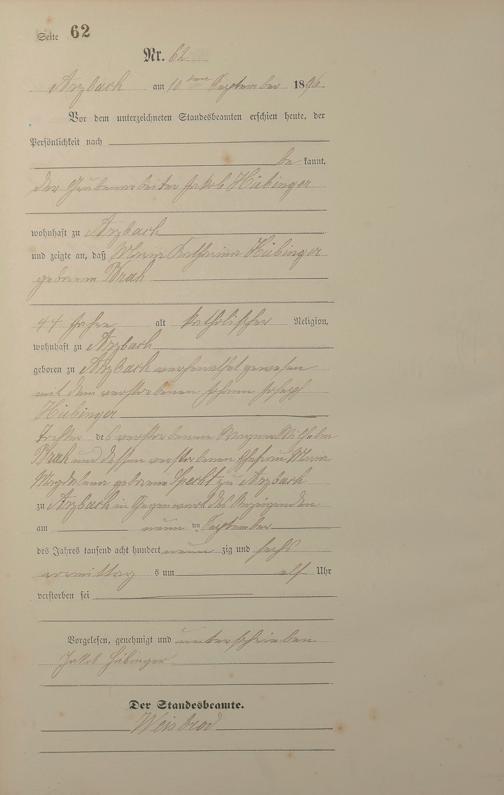 Seite 62
Nr. 62
Arzbach am 10ten September 1896.
Vor dem unterzeichneten Standesbeamten erschien heute, der
Persönlichkeit nach
be kannt,
der Grubenarbeiter Jakob Hübinger
wohnhaft zu Arzbach
und zeigte an, daß Maria Katharina Hübinger
geborene
44 Jahre alt katholischer Religion,
wohnhaft zu Arzbach
geboren zu Arzbach verheirathet gewesen
mit dem verstorbenen Johann Joseph
Hübinger
Tochter des verstorbenen Wilhelm
und dessen verstorbenen Ehefrau Maria
Magdalena geborene Specht zu Arzbach
zu Arzbach in Gegenwart des Anzeigenden
am neun ten September
des Jahres tausend acht hundert neun zig und sechs
vormittag s um elf Uhr
verstorben sei
Vorgelesen, genehmigt und unterschrieben
Jakob Hübinger
Der Standesbeamte.
Weisbrod